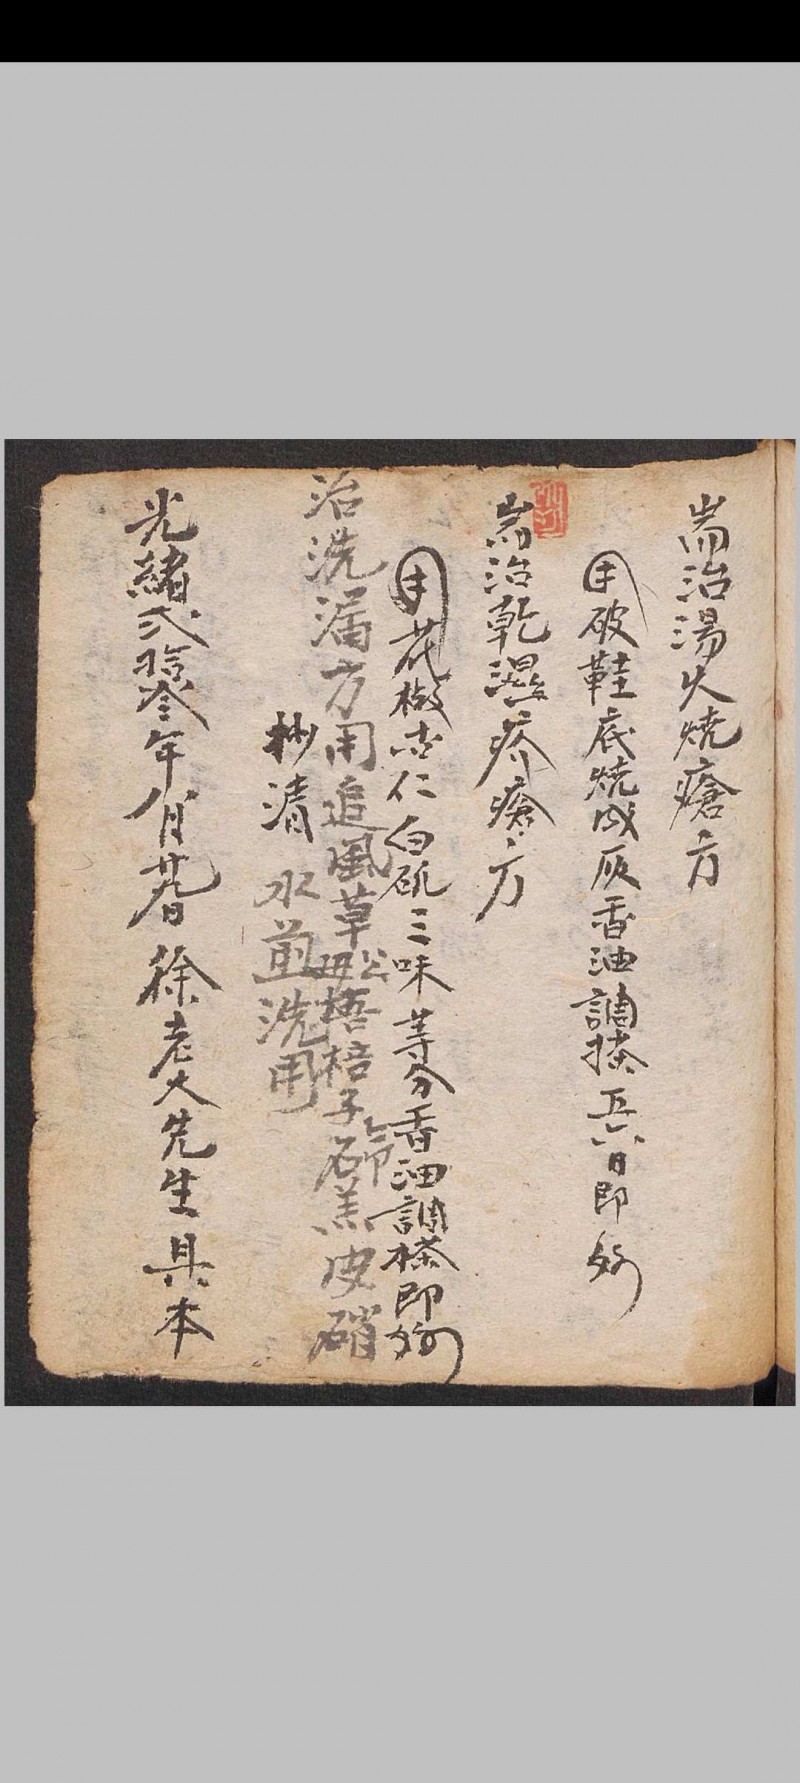 耑治湯火燒瘡方
用破鞋底燒成灰香油調搽五六日即好
耑治乾濕疥瘡方
用花椒杏仁白矾三味等分香油調搽即好
治洗漏方用追風草公母梧棓子石羔皮硝
杪清
水煎洗用
光緒弍拾叄年八月廿日徐老大先生具本